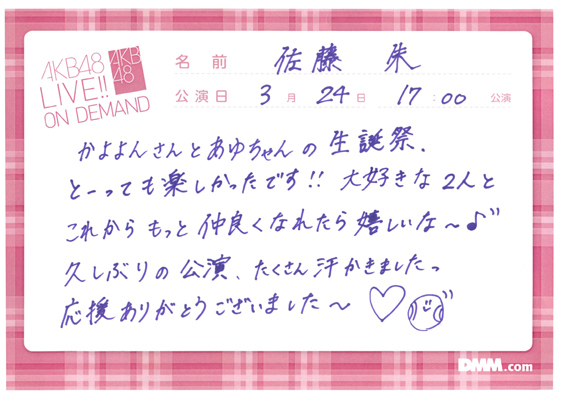 AKB48
LIVE!!
ON DEMAND
AKB
48
名前 佐藤 朱
公演日 3月24日 17:00 公演
かよよんさんとあゆちゃんの生誕祭、
とーっても楽しかったです!! 大好きな2人と
これからもっと仲良くなれたら嬉しいな〜♪"
久しぶりの公演、たくさん汗かきましたっ
応援ありがとうございました〜♡
DMM.com